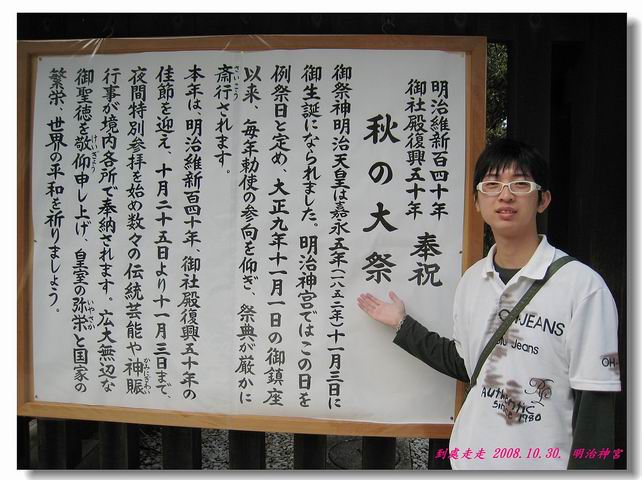 明治維新百四十年
御社殿復興五十年
奉祝
秋の大祭
御祭神明治天皇は嘉永五年(一八五二年)十一月三日に
御生誕になられました。明治神宮ではこの日を
例祭日と定め、大正九年十一月一日の御鎮座
以来、毎年勅使の参向を仰ぎ、祭典が厳かに
斎行されます。
本年は、明治維新百四十年、御社殿復興五十年の
佳節を迎え、十月二十五日より十一月三日まで、
夜間特別参拝を始め数々の伝統芸能や神賑
行事が境内各所で奉納されます。広大無辺な
御聖徳を敬仰申し上げ、皇室の弥栄と国家の
繁栄、世界の平和を祈りましょう。
さいこう
かみにぎわい
けいぎょう
いやさか
OH-JEANS
Jeans
OH-
Authentic
Since 1980
到處走走 2008.10.30. 明治神宮